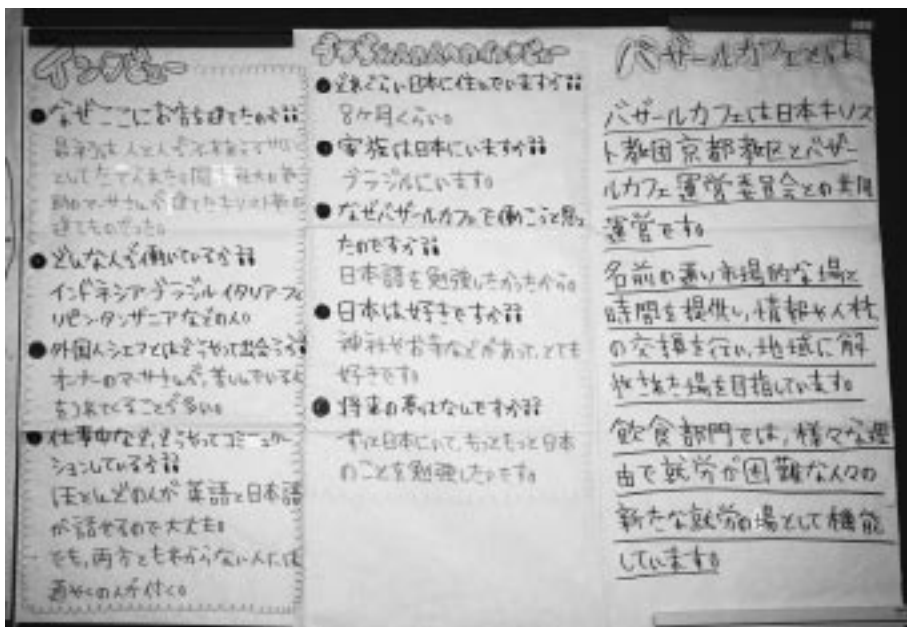 インタビュー
●なぜここにお店を建てたのか??
最初は人と人
として
助のマーサさんが建てたキリスト教の
建てものだった。
●どんな人が働いているか??
インドネシア・ブラジル・イタリア・フィ
リピン・タンザニアなどの人。
●外国人シェフとはどうやって出会うか??
オーナーのマーサさんが、苦しんでいる人
をつれてくることが多い。
●仕事中など、どうやってコミュニケー
ションしているか??
ほとんどの人が英語と日本語
が話せるので大丈夫。
でも、両方ともわからない人には
通やくの人が付く。
インタビュー
●どれぐらい日本に住んでいますか??
8ヶ月くらい。
●家族は日本にいますか??
ブラジルにいます。
●なぜバザールカフェで働こうと思っ
たのですか??
日本語を勉強したかったから。
●日本は好きですか??
神社やお寺などがあって、とても
好きです。
●将来の夢はなんですか??
ずっと日本にいて、もっともっと日本
のことを勉強したいです。
バザールカフェとは
バザールカフェは日本キリス
ト教団京都教区とバザー
ルカフェ運営委員会との共同
運営です。
名前の通り市場的な場と
時間を提供し、情報や人材
の交換を行い、地域に解
放された場を目指しています。
飲食部門では、様々な理
由で就労が困難な人々の
新たな就労の場として機能
しています。